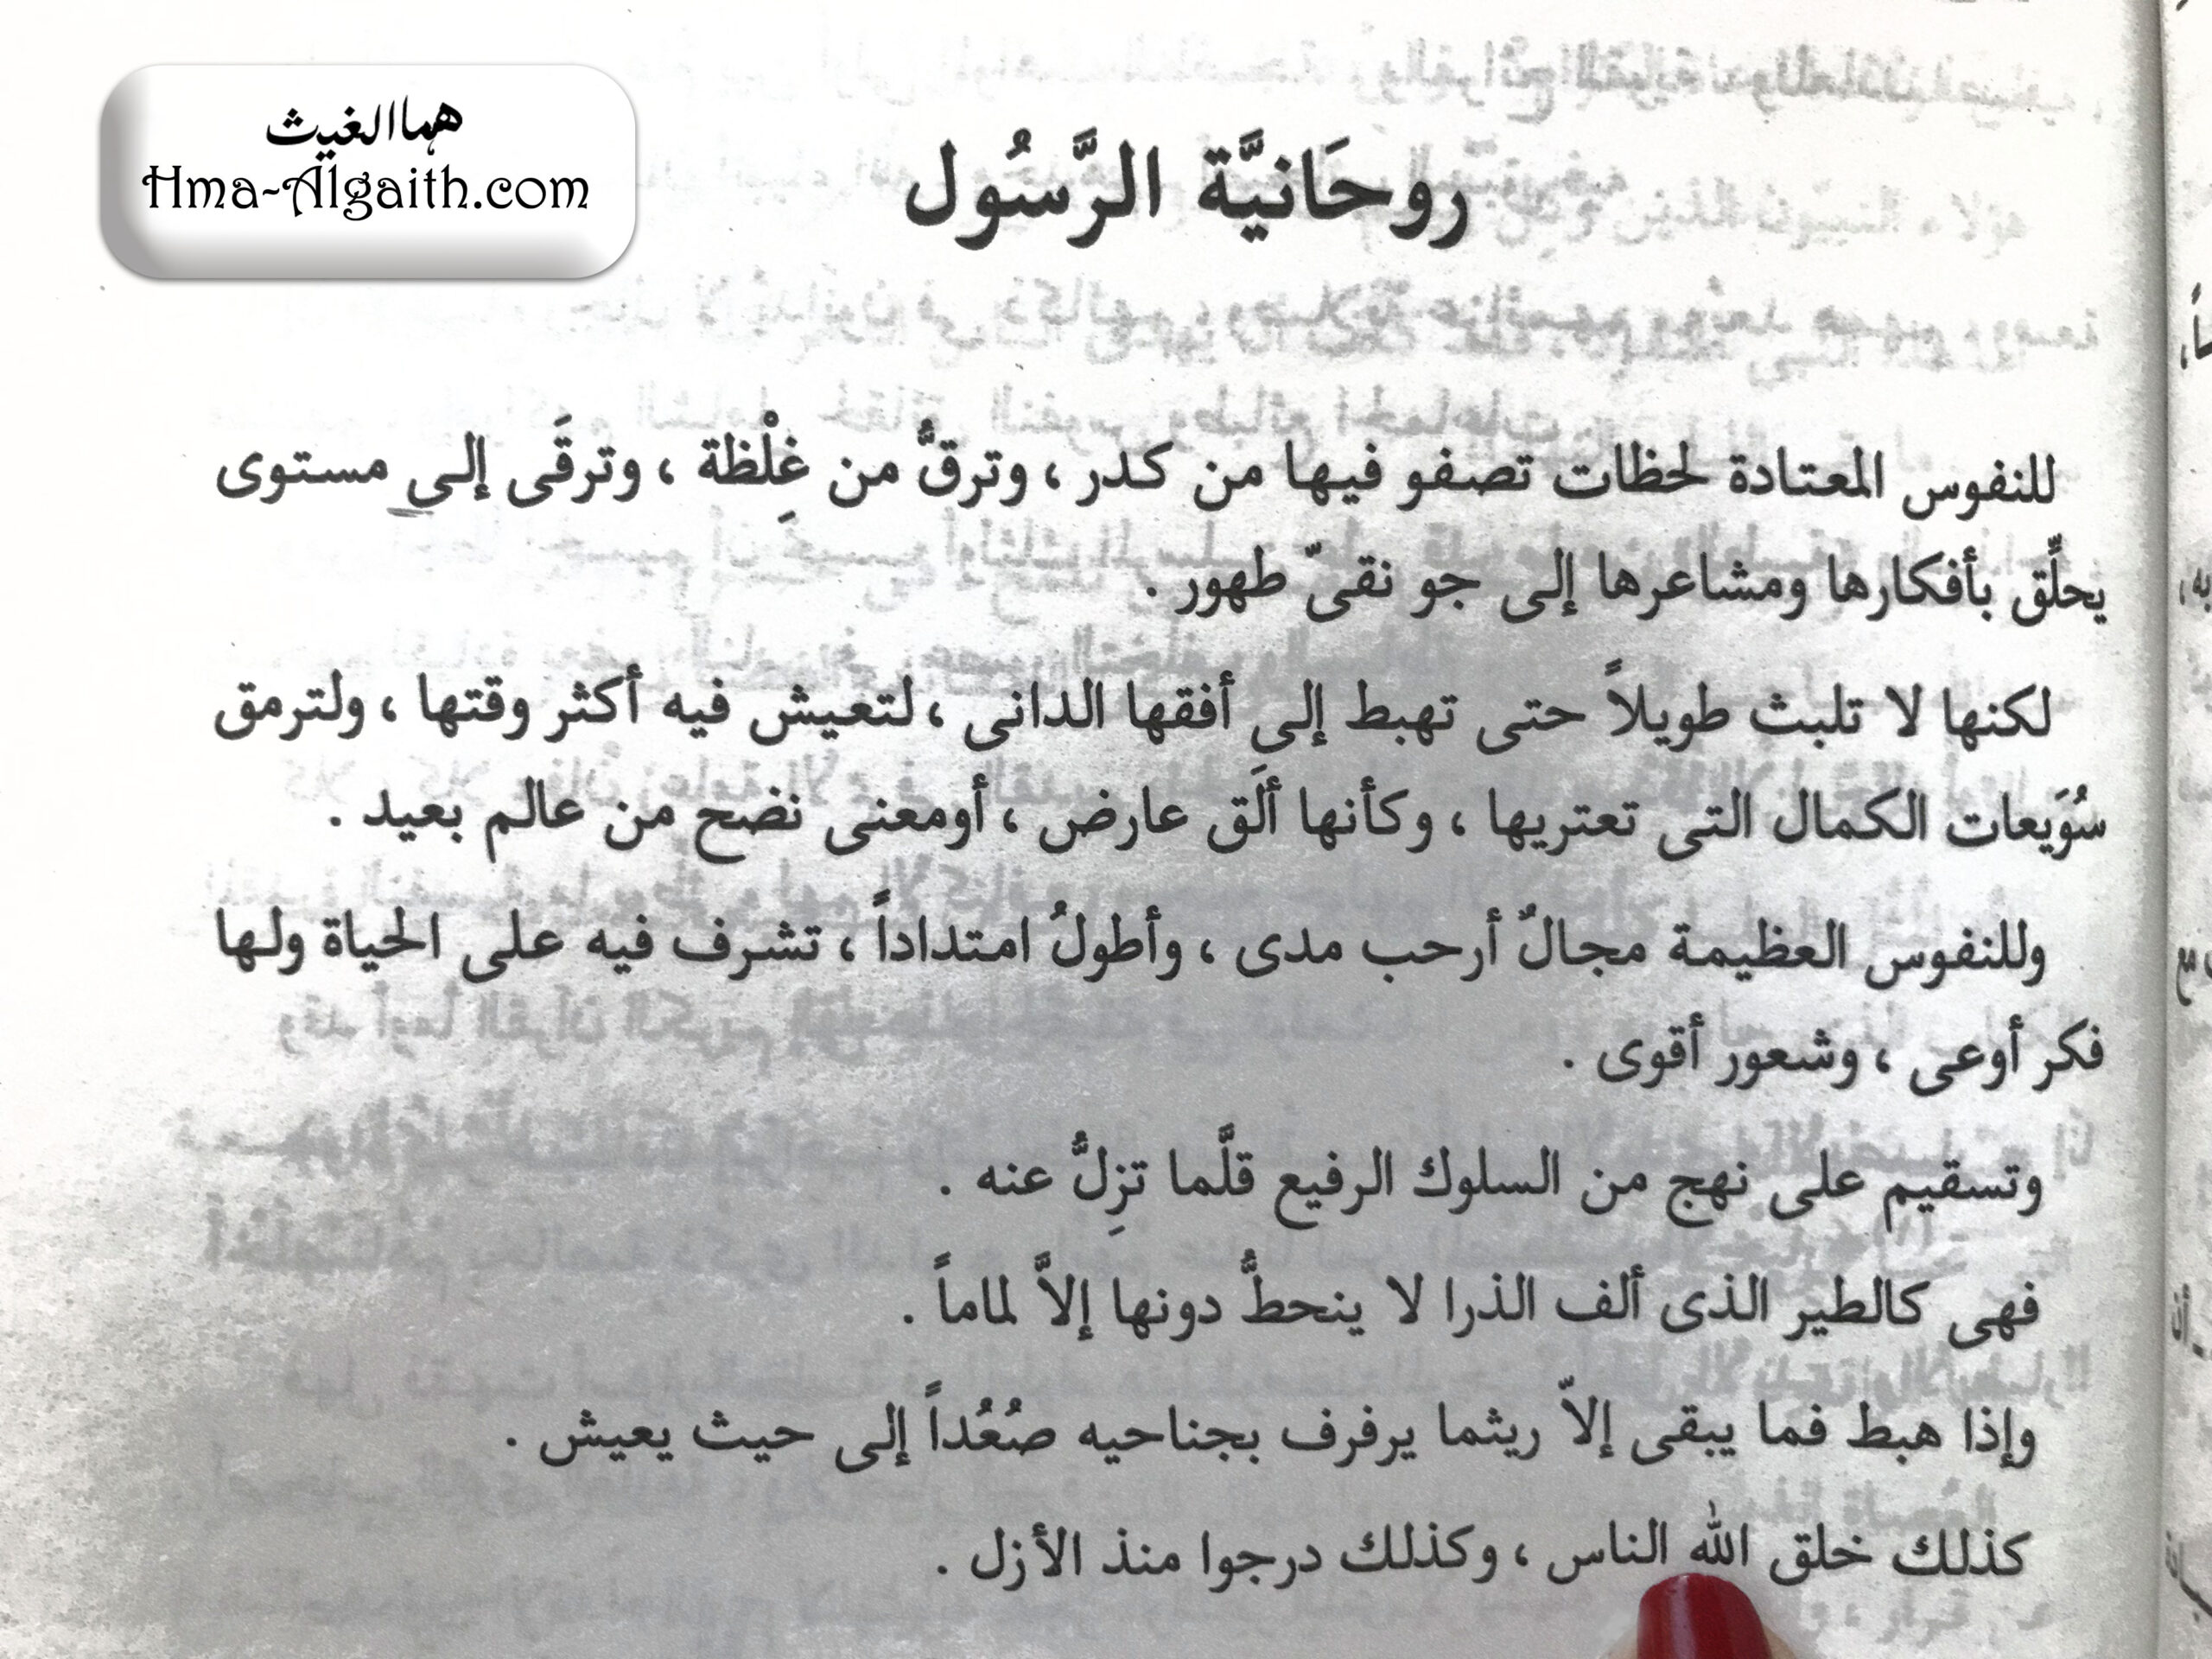 هما الغيث
Hma-Algaith.com
روحَانيَّة الرَّسُول
للنفوس المعتادة لحظات تصفو فيها من كدر ، وترقُّ من غِلْظة ، وترقَى إلى مستوى
يحلِّق بأفكارها ومشاعرها إلى جو نقىّ طهور .
لكنها لا تلبث طويلاً حتى تهبط إلى أفقها الدانى ، لتعيش فيه أكثر وقتها ، ولترمق
سُوَيعات الكمال التى تعتريها ، وكأنها ألَق عارض ، أومعنى نضح من عالم بعيد .
وللنفوس العظيمة مجالٌ أرحب مدى ، وأطولُ امتداداً ، تشرف فيه على الحياة ولها
فكر أوعى ، وشعور أقوى .
وتسقيم على نهج من السلوك الرفيع قلَّما تزِلُّ عنه .
فهى كالطير الذى ألف الذرا لا ينحطُّ دونها إلاَّ لماماً .
وإذا هبط فما يبقى إلاّ ريثما يرفرف بجناحيه صُعُداً إلى حيث يعيش .
كذلك خلق الله الناس ، وكذلك درجوا منذ الأزل .